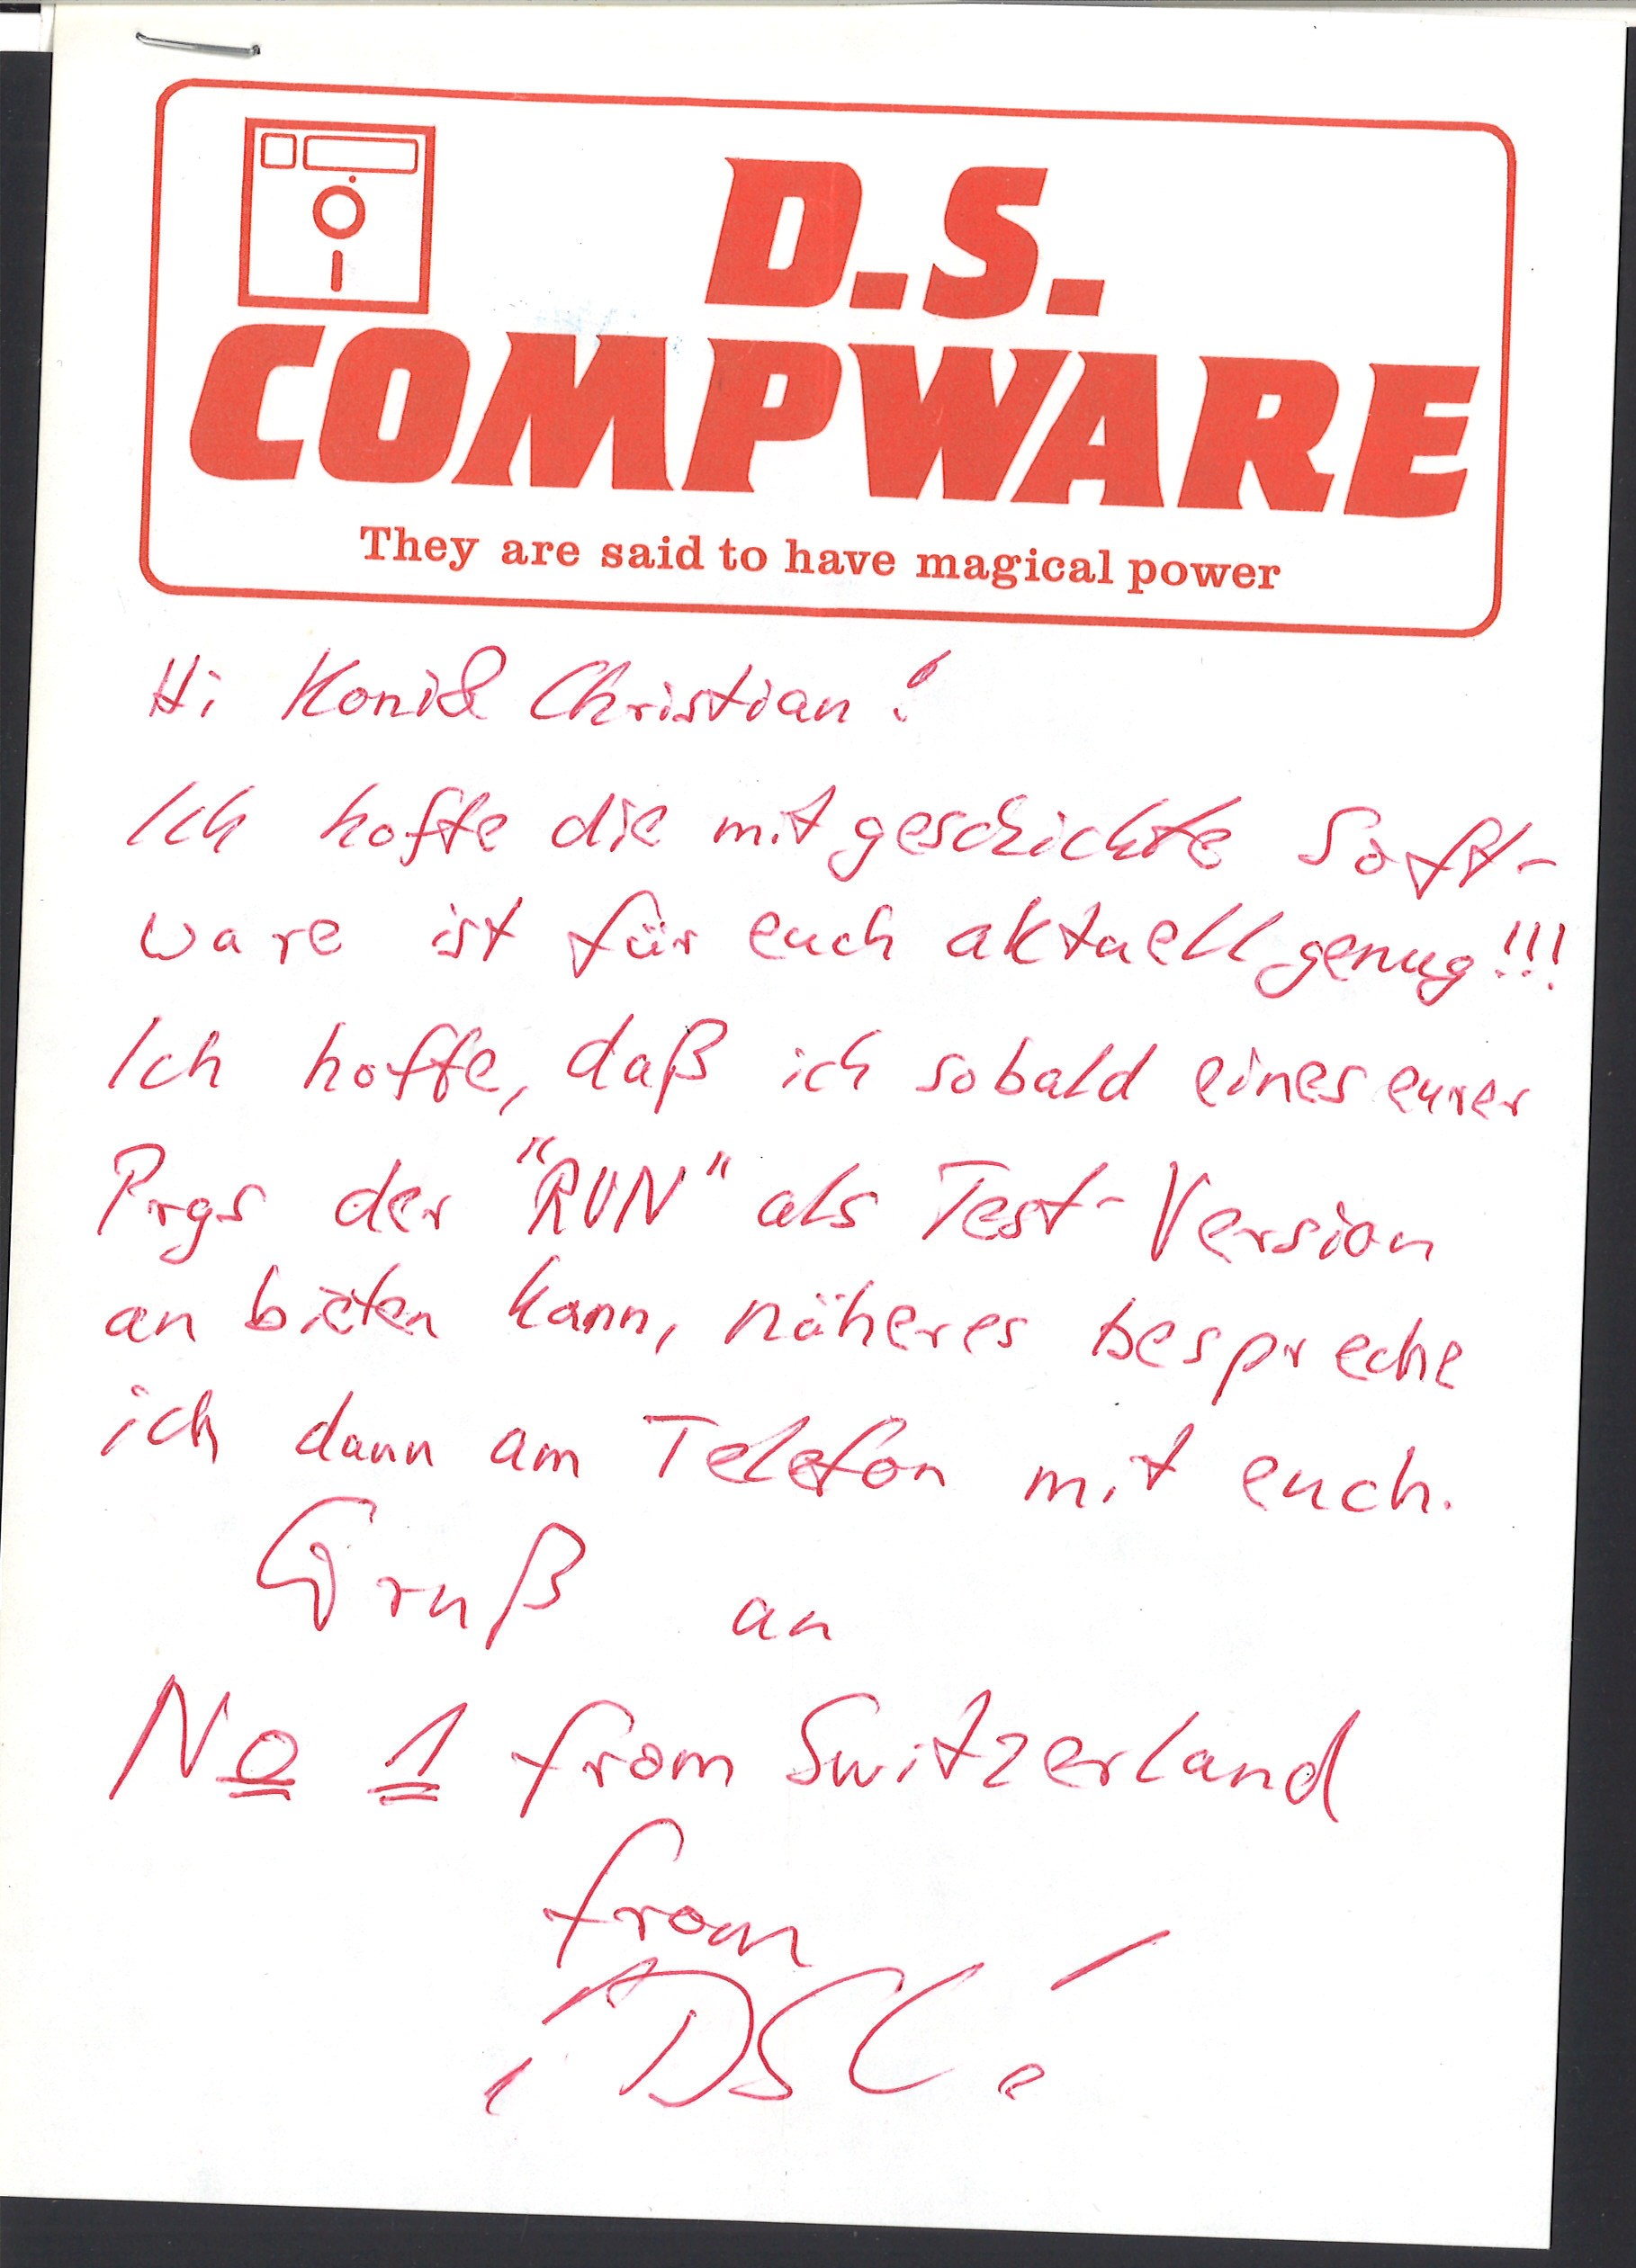 D.S.
COMPWARE
They are said to have magical power
Hi Koni & Christian!
Ich hoffe die mitgeschickte Soft-
ware ist für euch aktuell genug!!!
Ich hoffe, daß ich sobald eines eurer
Prgs der "RUN" als Test-Version
an bieten kann, näheres bespreche
ich dann am Telefon mit euch.
Gruß an
No 1 from Switzerland
from
!DSC!